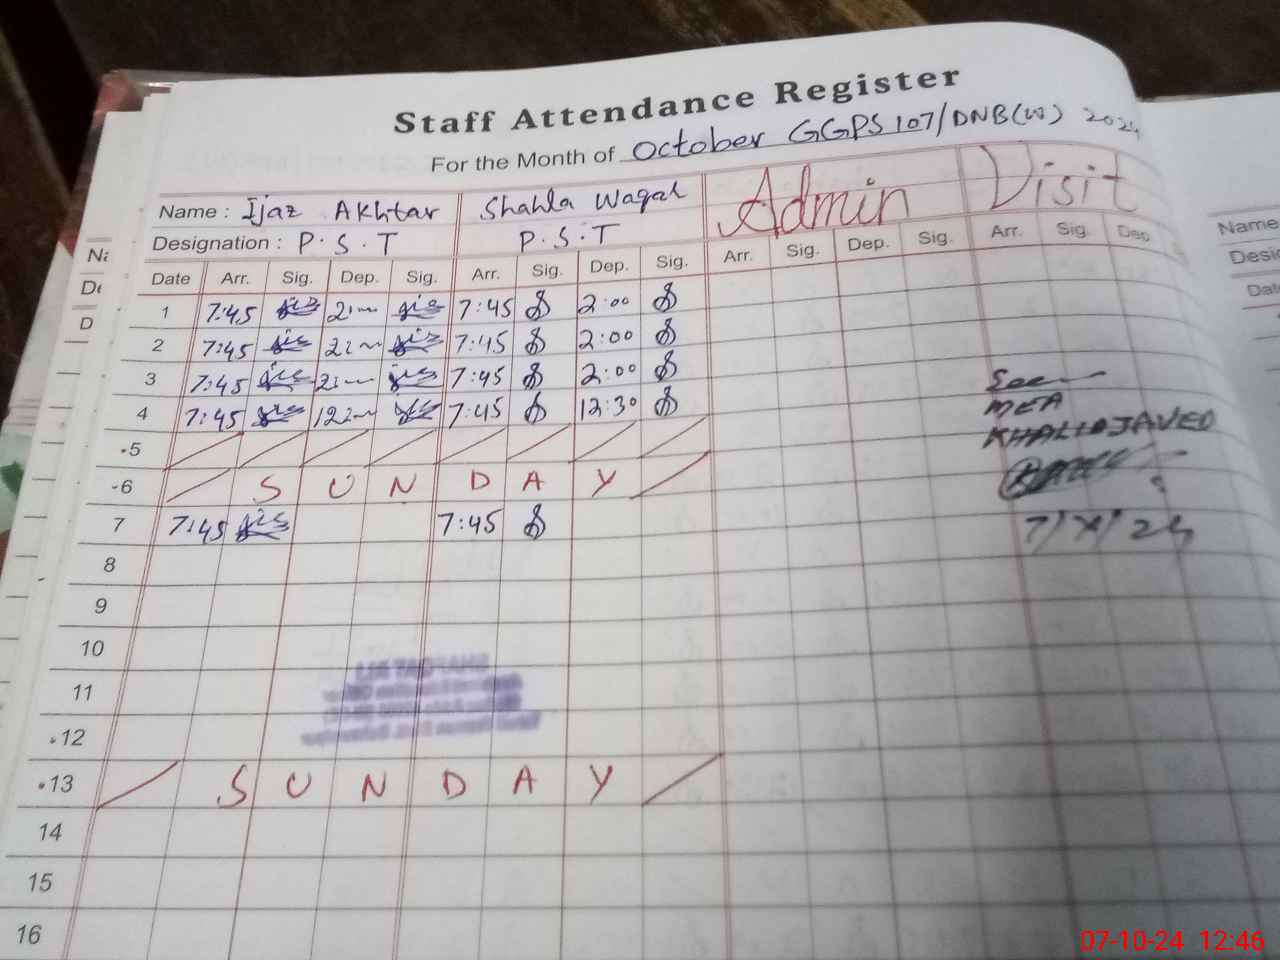 Staff Attendance Register
For the Month of October GGPS 107/DNB(W) 2024
Name : Ijaz Akhtar Shahla Waqal Admin Visit
Designation : P.S.T P.S.T
Date Arr. Sig. Dep. Sig. Arr. Sig. Dep. Sig. Arr. Sig. Dep. Sig. Arr. Sig. Dep
1 7:45 7:45 2:00
2 7:45 7:45 2:00
3 7:45 7:45 2:00
4 7:45 7:45 12:30
5
6 SUNDAY
7 7:45 7:45
8
9
10
11
12
13 SUNDAY
14
15
16
Seen
MEA
KHALID JAVED
7/X/24
Name
Date
07-10-24 12:46